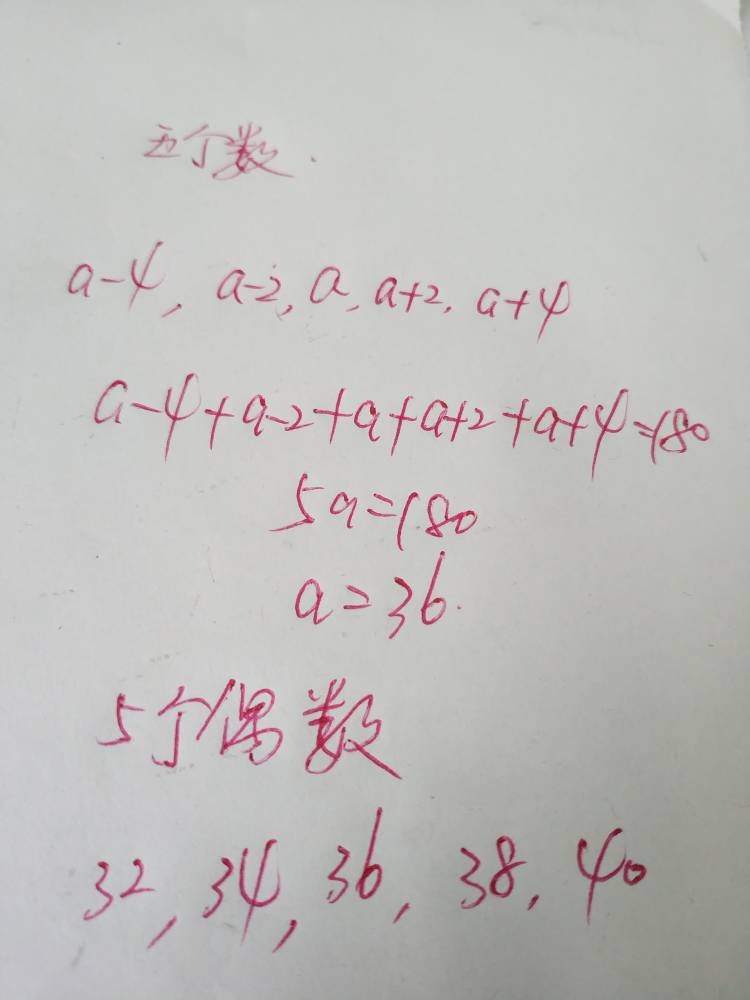 五个数.
a-4, a-2, a, a+2, a+4
a-4+a-2+a+a+2+a+4=180
5a=180
a=36.
5个偶数
32, 34, 36, 38, 40